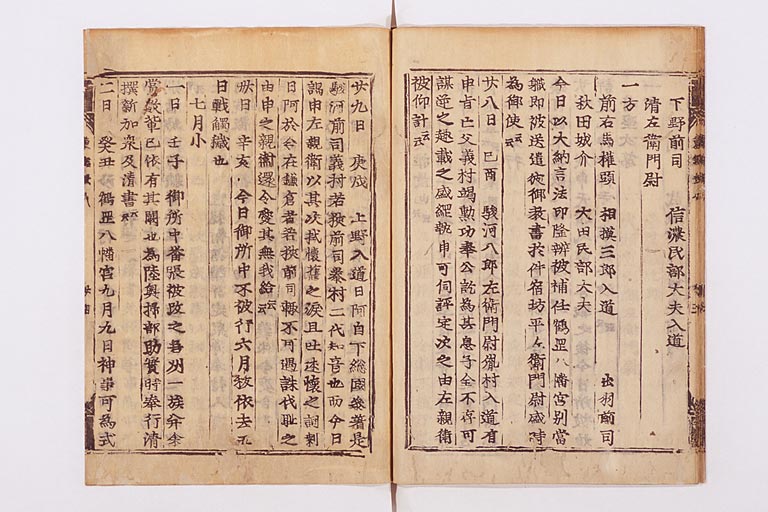 下野前司　信濃民部大夫入道
清左衛門尉
一方
前右馬權頭　相摸三郎入道　出羽前司
秋田城介　大田民部大夫
今日以大納言法印隆辨被補任鶴罡八幡宮別當
職即被送遣彼仰裴書於件宿坊平左衛門尉盛時
為御使云云
廿八日　己酉　駿河八郎左衛門尉胤村入道有
申旨亡父義村竭勲功奉公訖為其息子全不存可
謀逆之趣載之盛綱執申可伺評定次之由左親衛
被仰計云云
廿九日　庚戌　上野入道日阿自下総國參著是
駿河前司義村若狹前司泰村二代知音也而今日
謁申左親衛以其次拭懷舊之涙且吐述懷之詞剰
日阿於令在鎌倉者若狹前司輙不可遇誅伐耻之
由申之親衛還令憂其無我給云云
卅日　辛亥　今日御所中不被行六月祓依去五
日戰觸穢也
七月小
一日　壬子　御所中番帳被改之若州一族并余
黨數輩已依有其闕也為陸奥掃部助實時奉行清
撰新加衆及清書云云
二日　癸丑　鶴罡八幡宮九月九日神事可為式